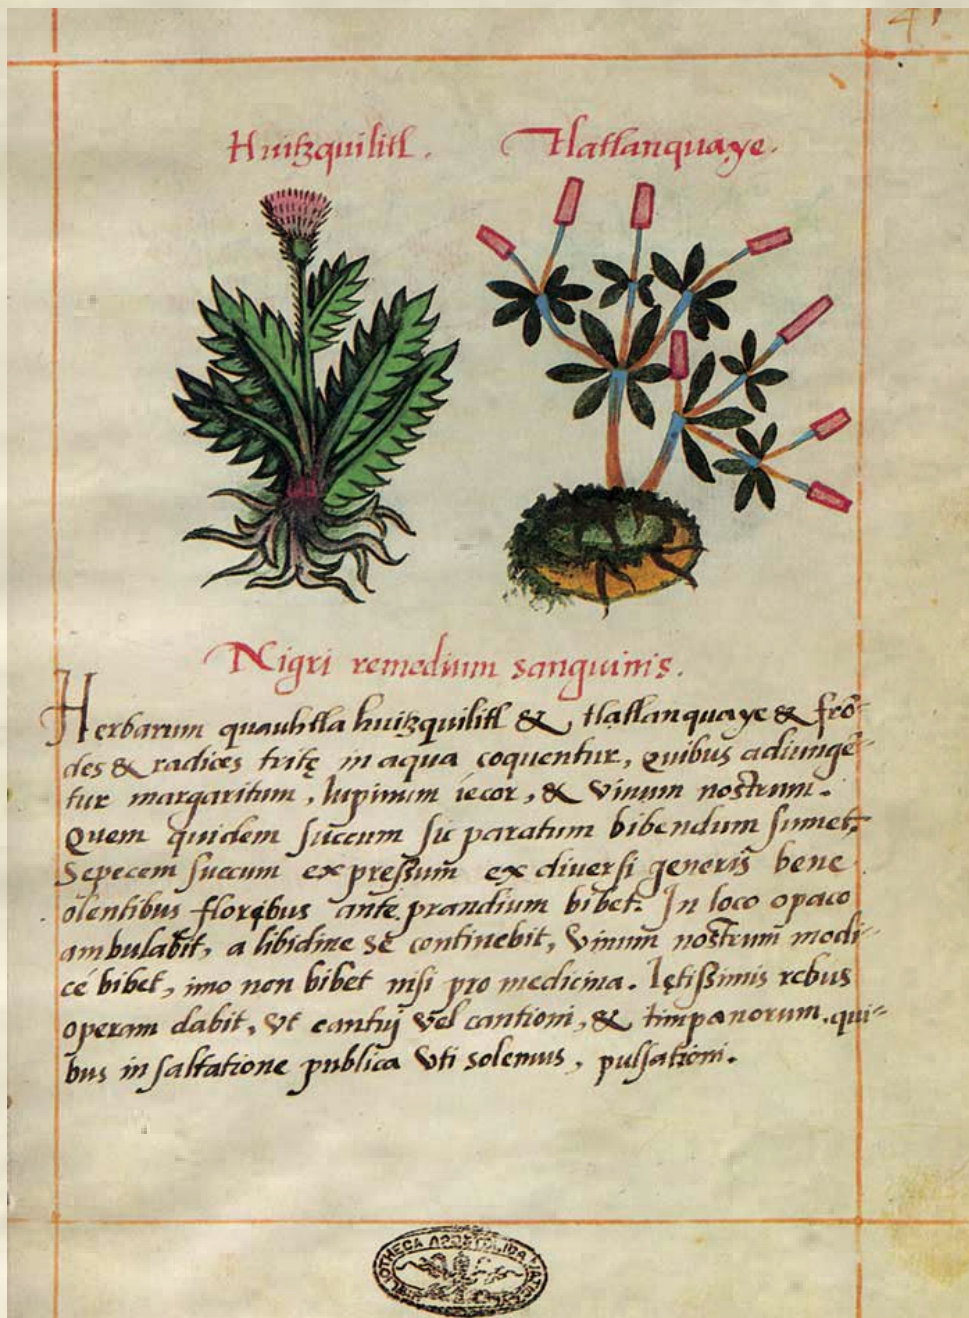 41
Huitzquilitl. Tlatlanquaye.
Nigri remedium sanguinis.
Herbarum quauhtla huitzquilitl & tlatlanquaye & frō-
des & radices tritę in aqua coquentur, quibus adiungē-
tur margaritum, lupinum iecor, & vinum nostrum.
Quem quidem succum sic paratum bibendum sumet.
Sepecem succum expressum ex diversi generis bene
olentibus floribus ante prandium bibet. In loco opaco
ambulabit, a libidine se continebit, vinum nostrum modi-
cé bibet, imo non bibet nisi pro medicina. lętissimis rebus
operam dabit, vt cantuj vel cantioni, & timpanorum, qui-
bus in saltatione publica vti solemus, pulsationi.
BIBLIOTHECA APOSTOLICA VATICANA